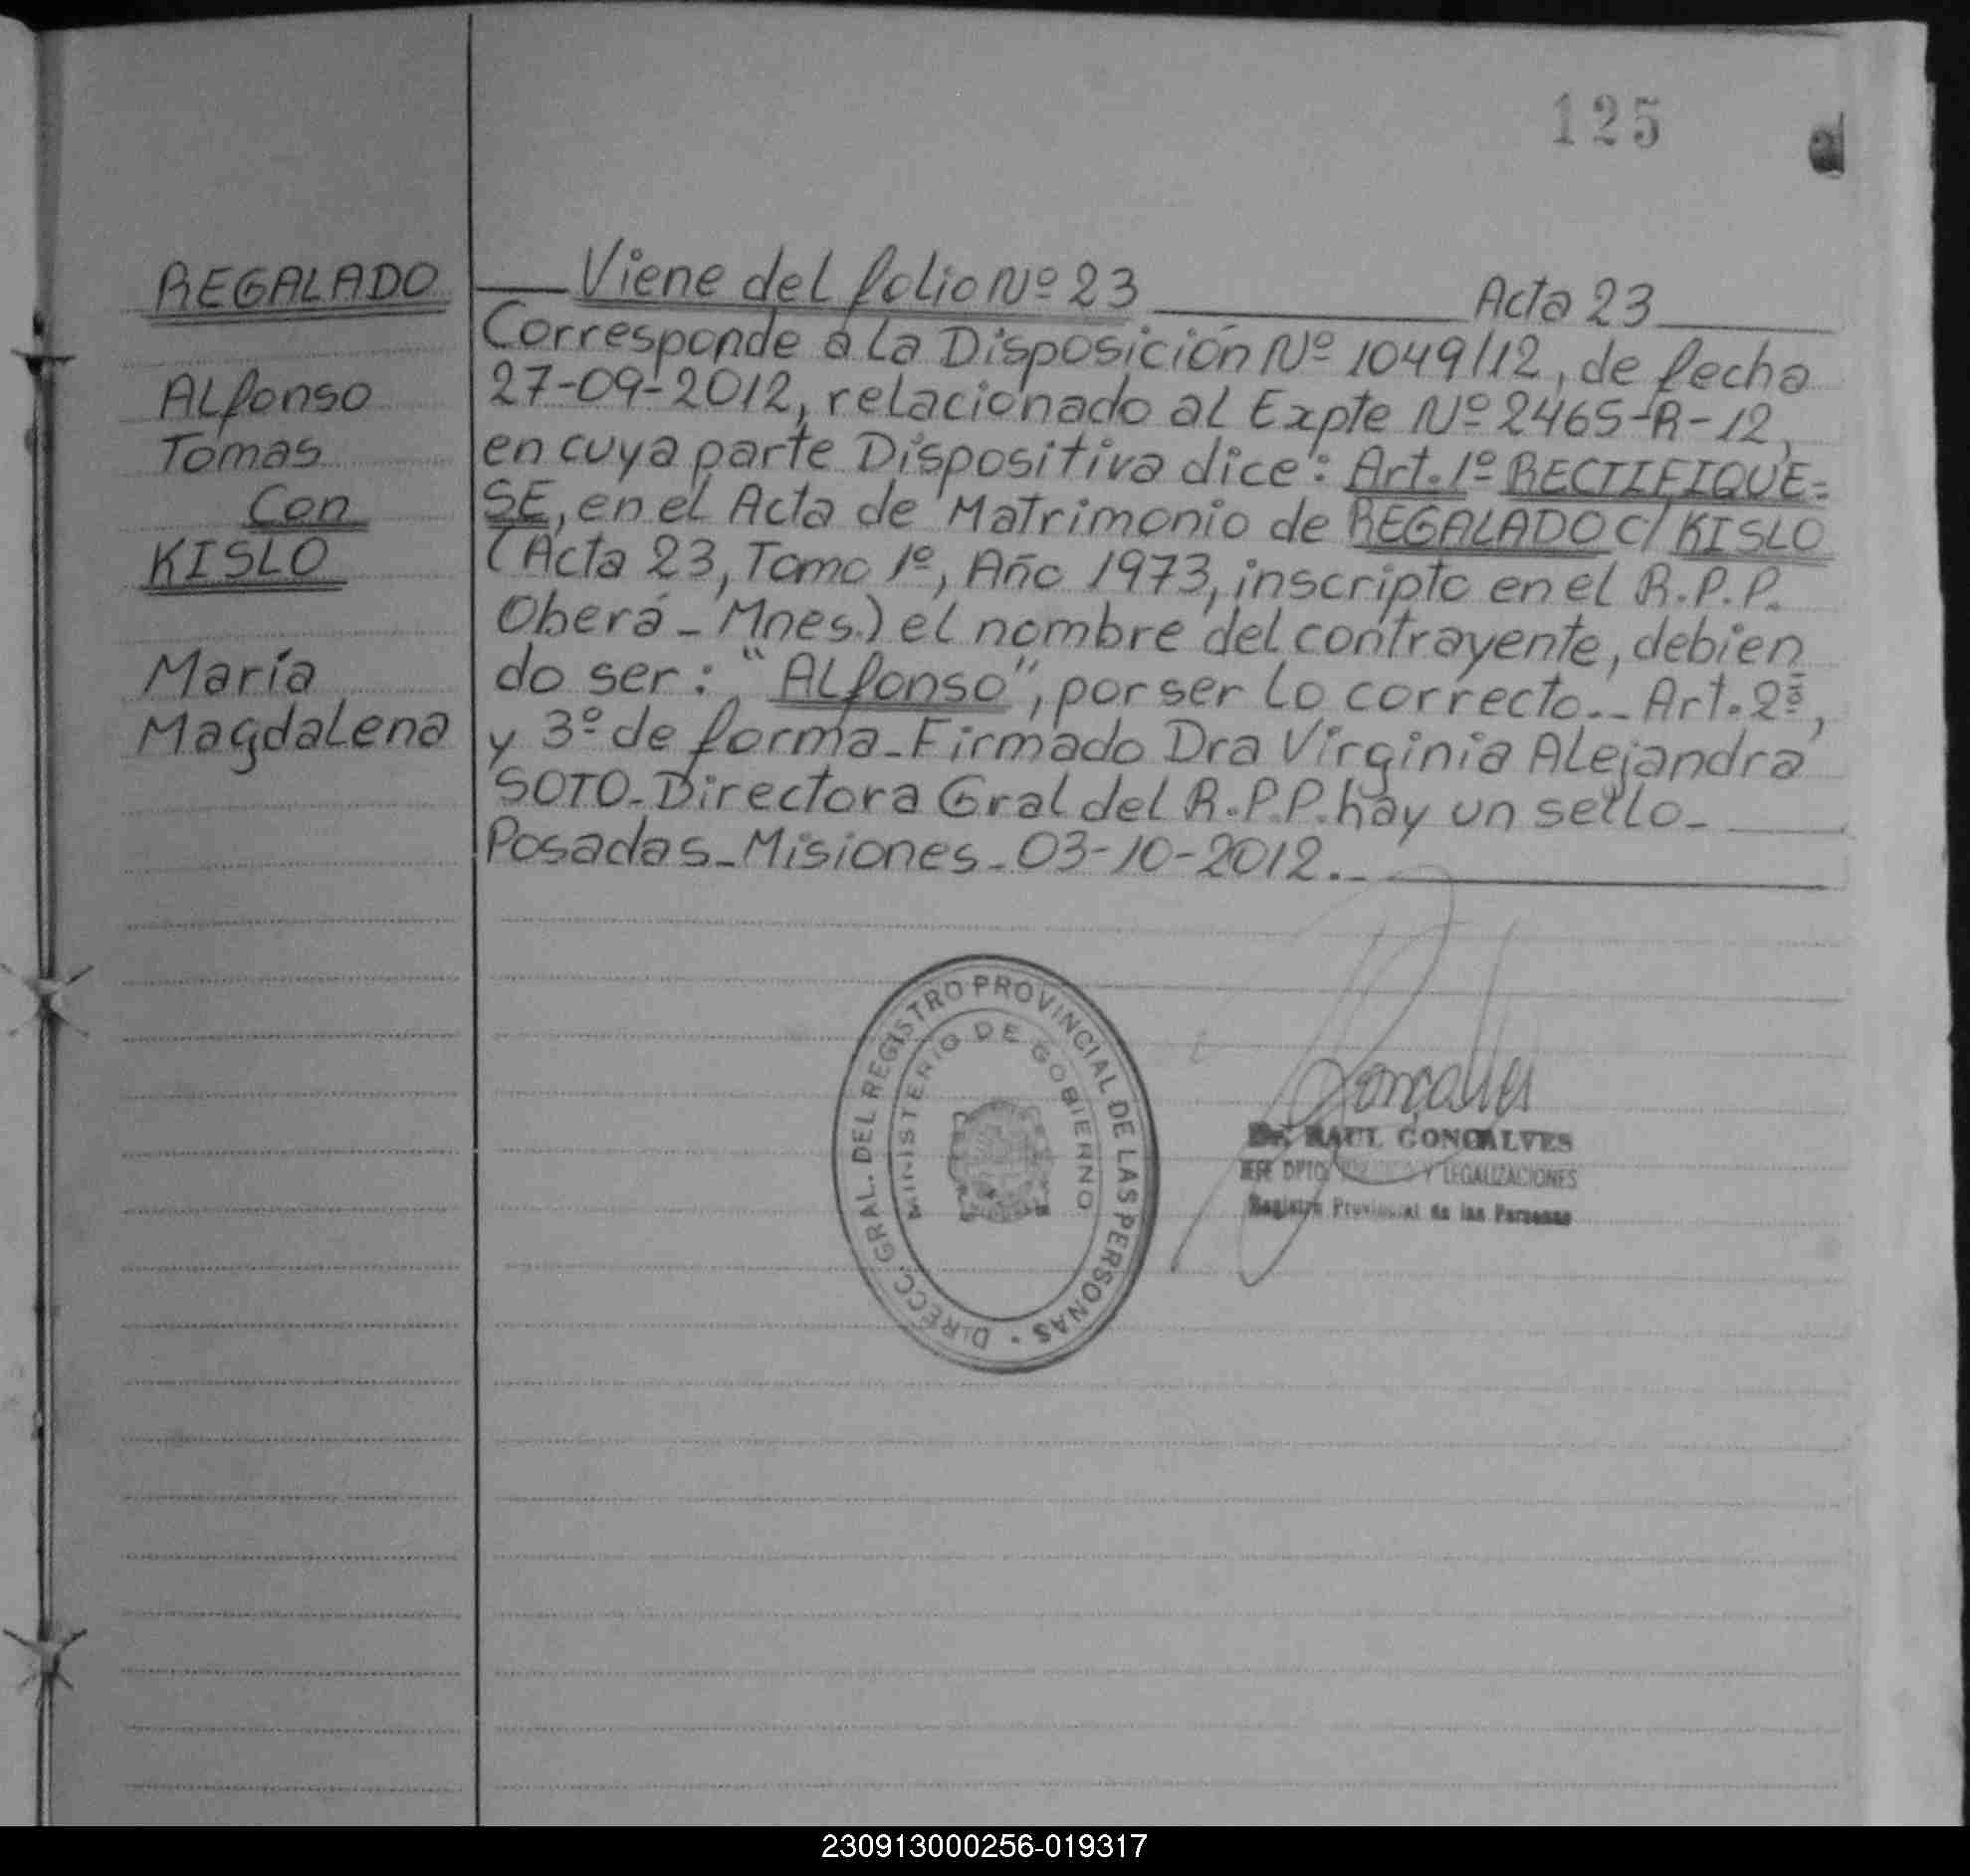 125
REGALADO
Alfonso
Tomas
Con
KISLO
María
Magdalena
Viene del folio Nº 23 Acta 23
Corresponde a la Disposición Nº 1049/12, de fecha
27-09-2012, relacionado al Expte Nº 2465-R-12,
en cuya parte Dispositiva dice: Art. 1º RECTIFIQUE=
SE, en el Acta de Matrimonio de REGALADO C/ KISLO
(Acta 23, Tomo 1º, Año 1973, inscripto en el R.P.P.
Oberá - Mnes.) el nombre del contrayente, debien
do ser: "Alfonso", por ser lo correcto.- Art. 2º,
y 3º de forma - Firmado Dra Virginia Alejandra
SOTO - Directora Gral del R.P.P. hay un sello -
Posadas - Misiones - 03-10-2012.-
DIRECC. GRAL. DEL REGISTRO PROVINCIAL DE LAS PERSONAS
MINISTERIO DE GOBIERNO
Goncalves
Dr. RAUL GONCALVES
JEFE DPTO. Y LEGALIZACIONES
Registro Provincial de las Personas
230913000256-019317